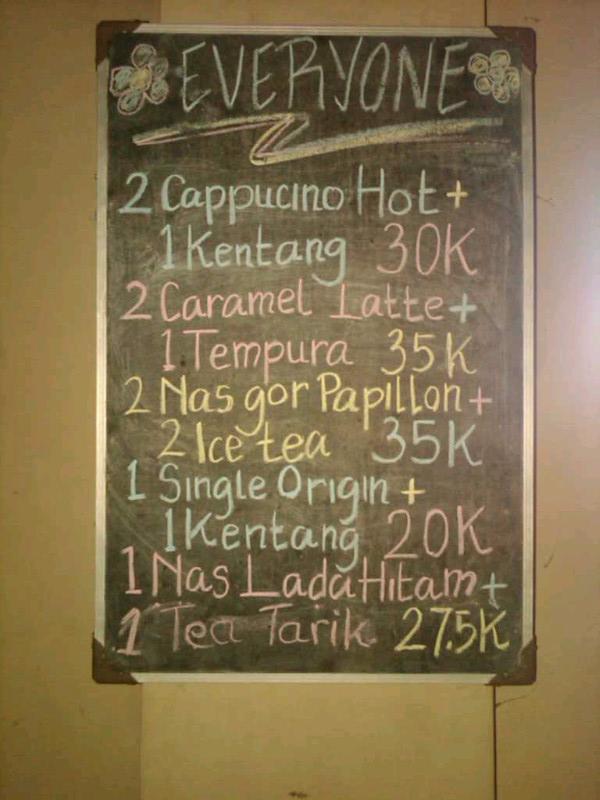 EVERYONE
2 Cappucino Hot +
1 Kentang 30K
2 Caramel Latte +
1 Tempura 35K
2 Nasgor Papillon +
2 Ice tea 35K
1 Single Origin +
1 Kentang 20K
1 Nas Lada Hitam +
1 Tea Tarik 27.5K